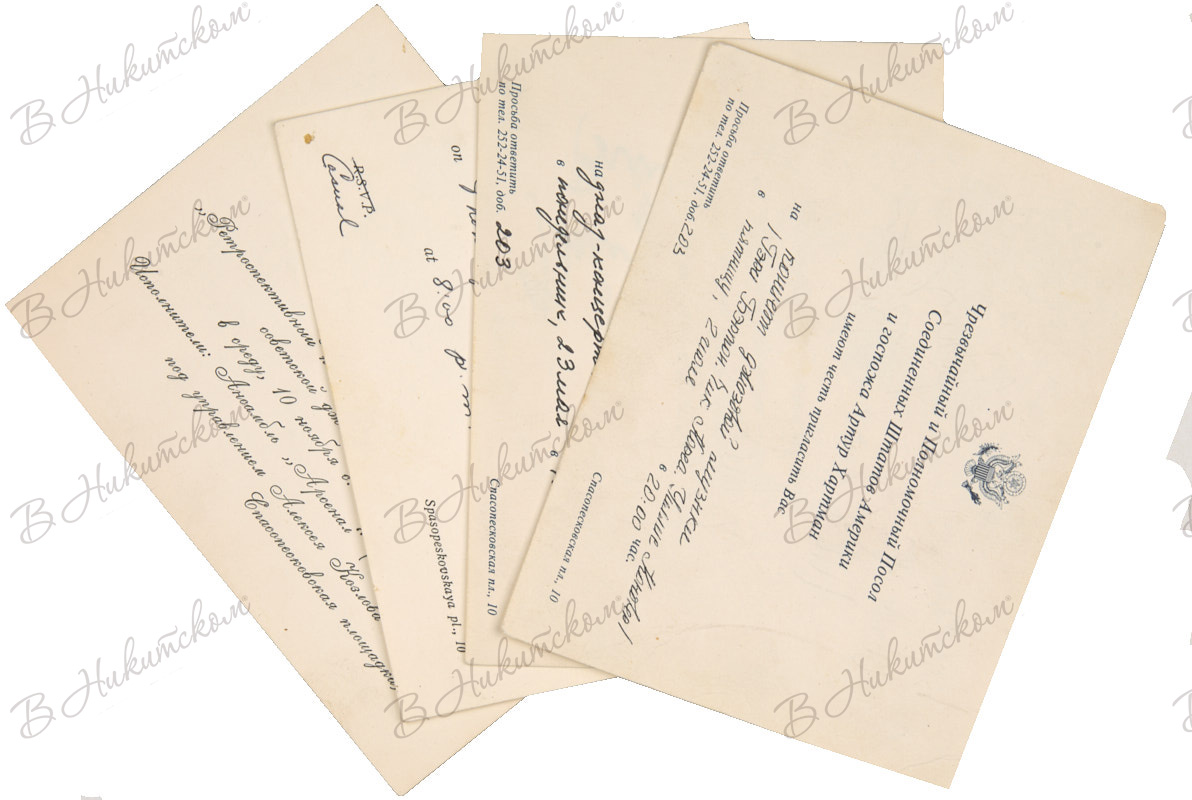 Чрезвычайный и Полномочный Посол
Соединенных Штатов Америки
и госпожа Артур Хартман
имеют честь пригласить Вас
на концерт джазовой музыки
/Гэри Бертон, Чик Кориа. Уилше Коновер/
в пятницу, 2 июля в 20:00 час.
Просьба ответить
по тел. 252-24-51, доб. 203
Спасопесковская пл., 10
на джаз-концерт
в понедельник, 23 мая в
Просьба ответить
по тел. 252-24-51, доб. 203
Спасопесковская пл., 10
on
at 8:00 p.m.
R.S.V.P.
Casual
Spasopeskovskaya pl., 10
„Ретроспективный
советской дж
в среду, 10 ноября в
Исполнители: Ансамбль „Арсенал“
под управлением Алексея Козлова
Спасопесковская площадка,
В Никитском®